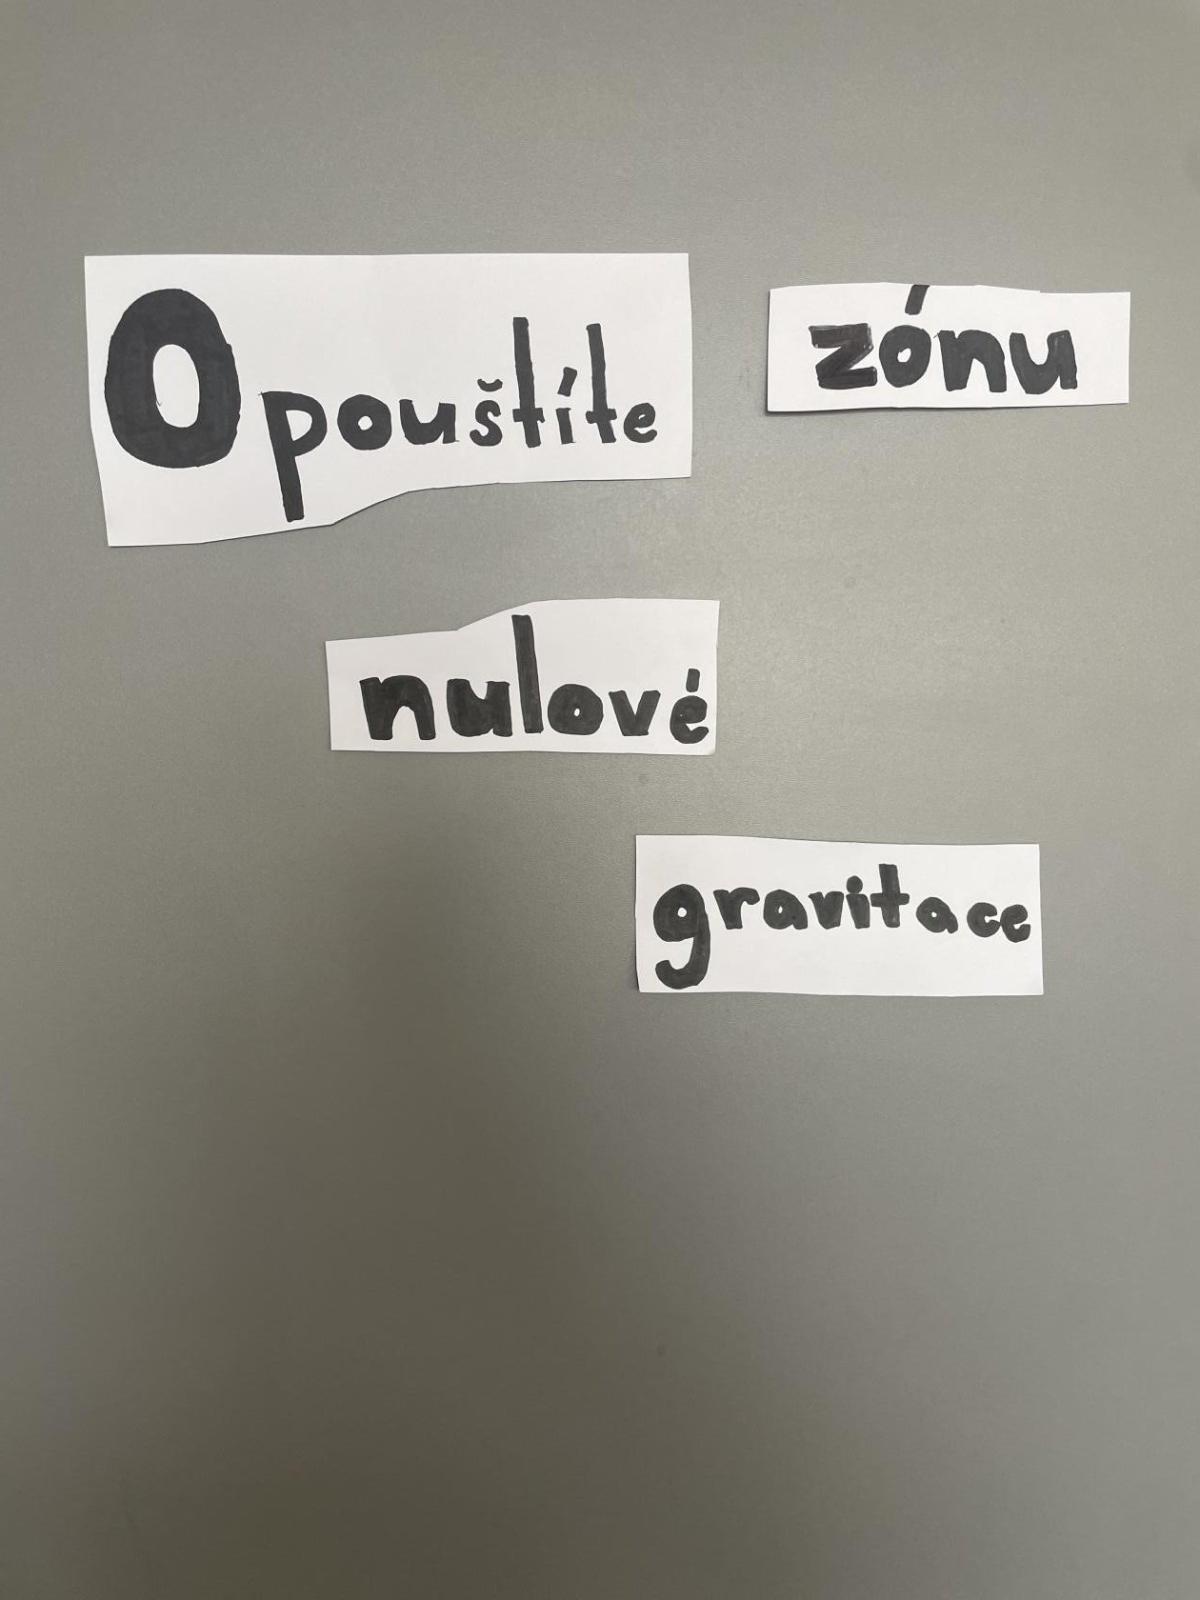 Opouštíte zónu
nulové
gravitace